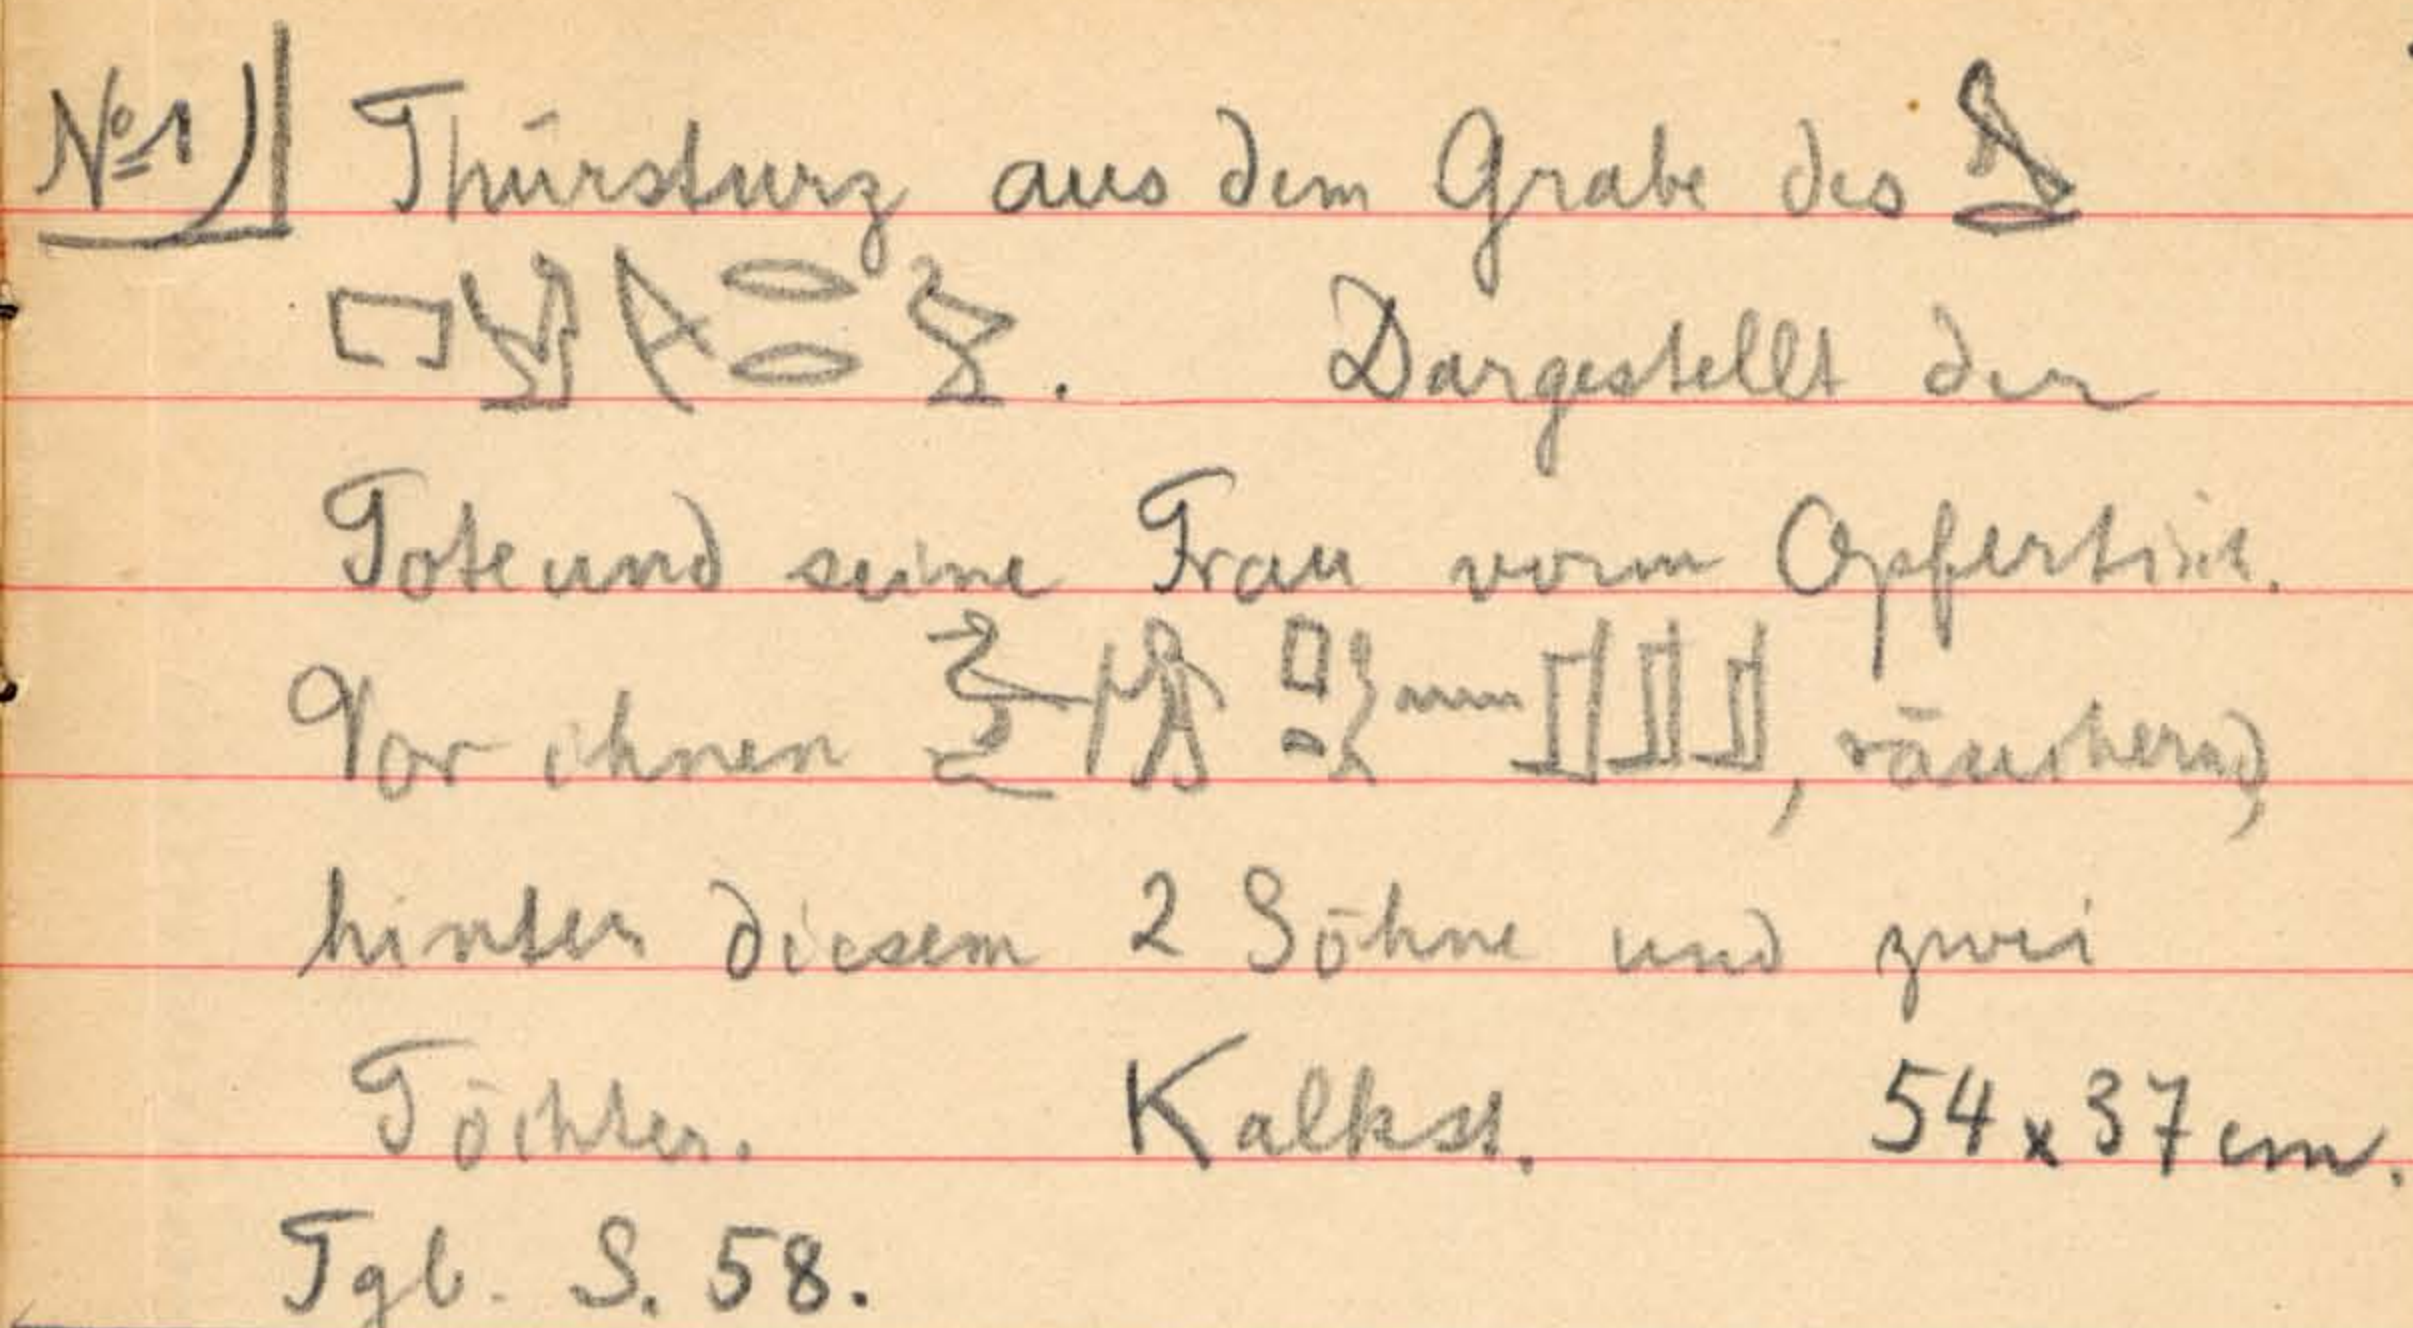 No 1) Thürsturz aus dem Grabe des
. Dargestellt der
Tote und seine Frau vorm Opfertisch.
Vor ihnen , räuchernd,
hinter diesem 2 Söhne und zwei
Töchter. Kalkst. 54 x 37 cm.
Tgb. S. 58.